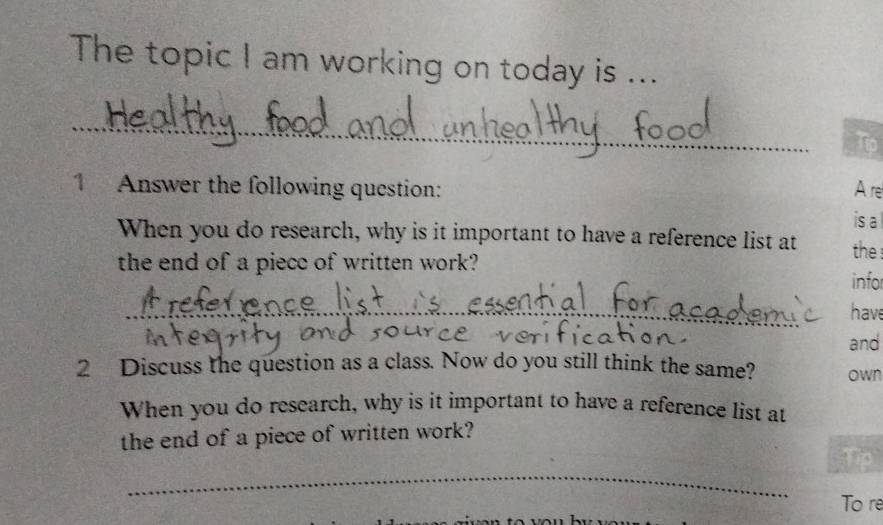 The topic I am working on today is ...
Healthy food and unhealthy food
Tip
1 Answer the following question:
A re
When you do research, why is it important to have a reference list at
is a
the end of a piece of written work?
the
infor
A reference list is essential for academic
have
integrity and source verification.
and
2 Discuss the question as a class. Now do you still think the same?
own
When you do research, why is it important to have a reference list at
the end of a piece of written work?
Tip
To re